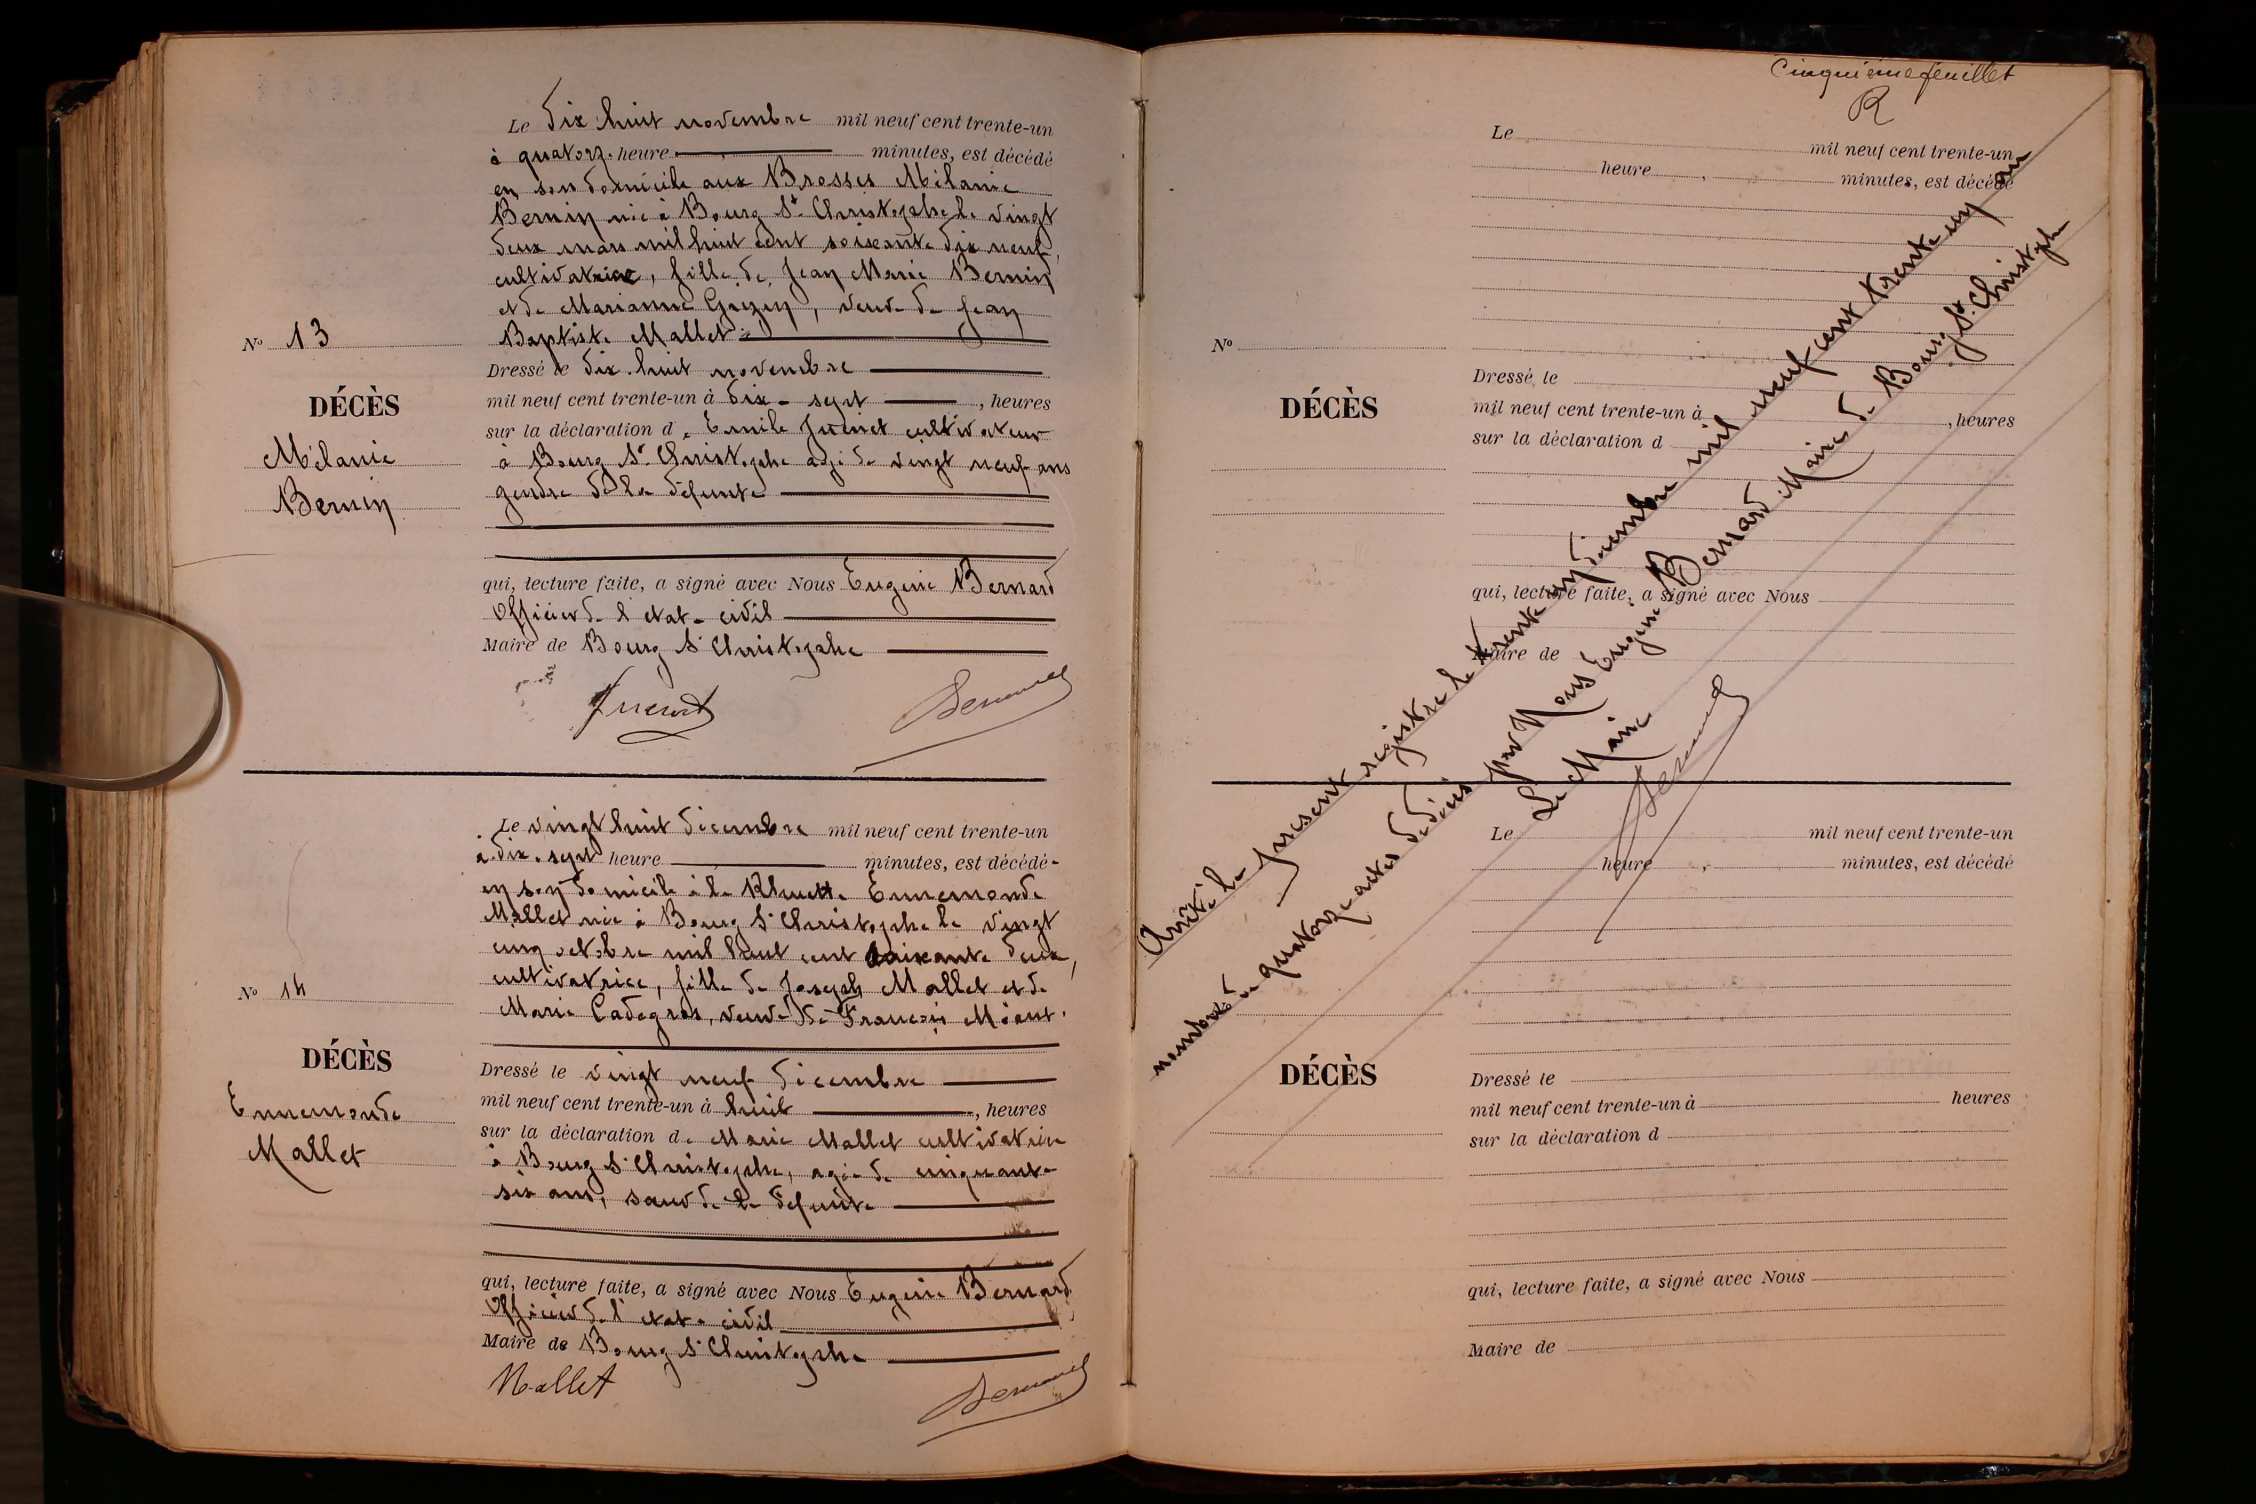 Le dix huit novembre mil neuf cent trente-un
à quatorze heure minutes, est décédé
en son domicile aux Brosses Mélanie
Bernin née à Bourg St Christophe le vingt
deux mars mil huit cent soixante dix neuf,
cultivatrice, fille de Jean Marie Bernin
et de Marianne Guzey, veuve de Jean
Baptiste Mallet
No 13
Dressé le dix huit novembre
mil neuf cent trente-un à dix-sept, heures
DÉCÈS
sur la déclaration de Emile Juenet cultivateur
Mélanie
à Bourg St Christophe agé de vingt neuf ans
Bernin
gendre de la défunte
qui, lecture faite, a signé avec Nous Eugène Bernard
Officier de l'etat-civil
Maire de Bourg St Christophe
Juenet
Bernard
Le vingt huit décembre mil neuf cent trente-un
à dix-sept heure minutes, est décédé
en son domicile à la Ruette Ennemonde
Mallet née à Bourg St Christophe le vingt
cinq octobre mil huit cent soixante deux,
cultivatrice, fille de Joseph Mallet et de
No 14
Marie Cadegros, veuve de François Miant.
DÉCÈS
Dressé le vingt neuf décembre
mil neuf cent trente-un à huit, heures
Ennemonde
sur la déclaration de Marie Mallet cultivatrice
Mallet
à Bourg St Christophe, agée de cinquante
six ans, sœur de la défunte
qui, lecture faite, a signé avec Nous Eugène Bernard
Officier de l'etat-civil
Maire de Bourg St Christophe
Mallet
Bernard
Cinquième feuillet
R
Le mil neuf cent trente-un
heure minutes, est décédé
No
Dressé le
DÉCÈS
mil neuf cent trente-un à, heures
sur la déclaration d
qui, lecture faite, a signé avec Nous
Maire de
Arrêté le present registre le trente un décembre mil neuf cent trente un au
nombre de quatorze actes de décès par Nous Eugène Bernard Maire de Bourg St Christophe
Le Maire
Bernard
Le mil neuf cent trente-un
heure minutes, est décédé
DÉCÈS
Dressé le
mil neuf cent trente-un à heures
sur la déclaration d
qui, lecture faite, a signé avec Nous
Maire de